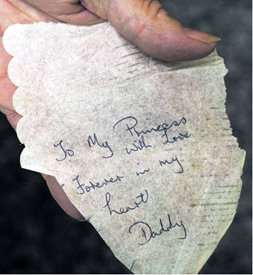 To My Princess
with Love
Forever in my
heart
Daddy